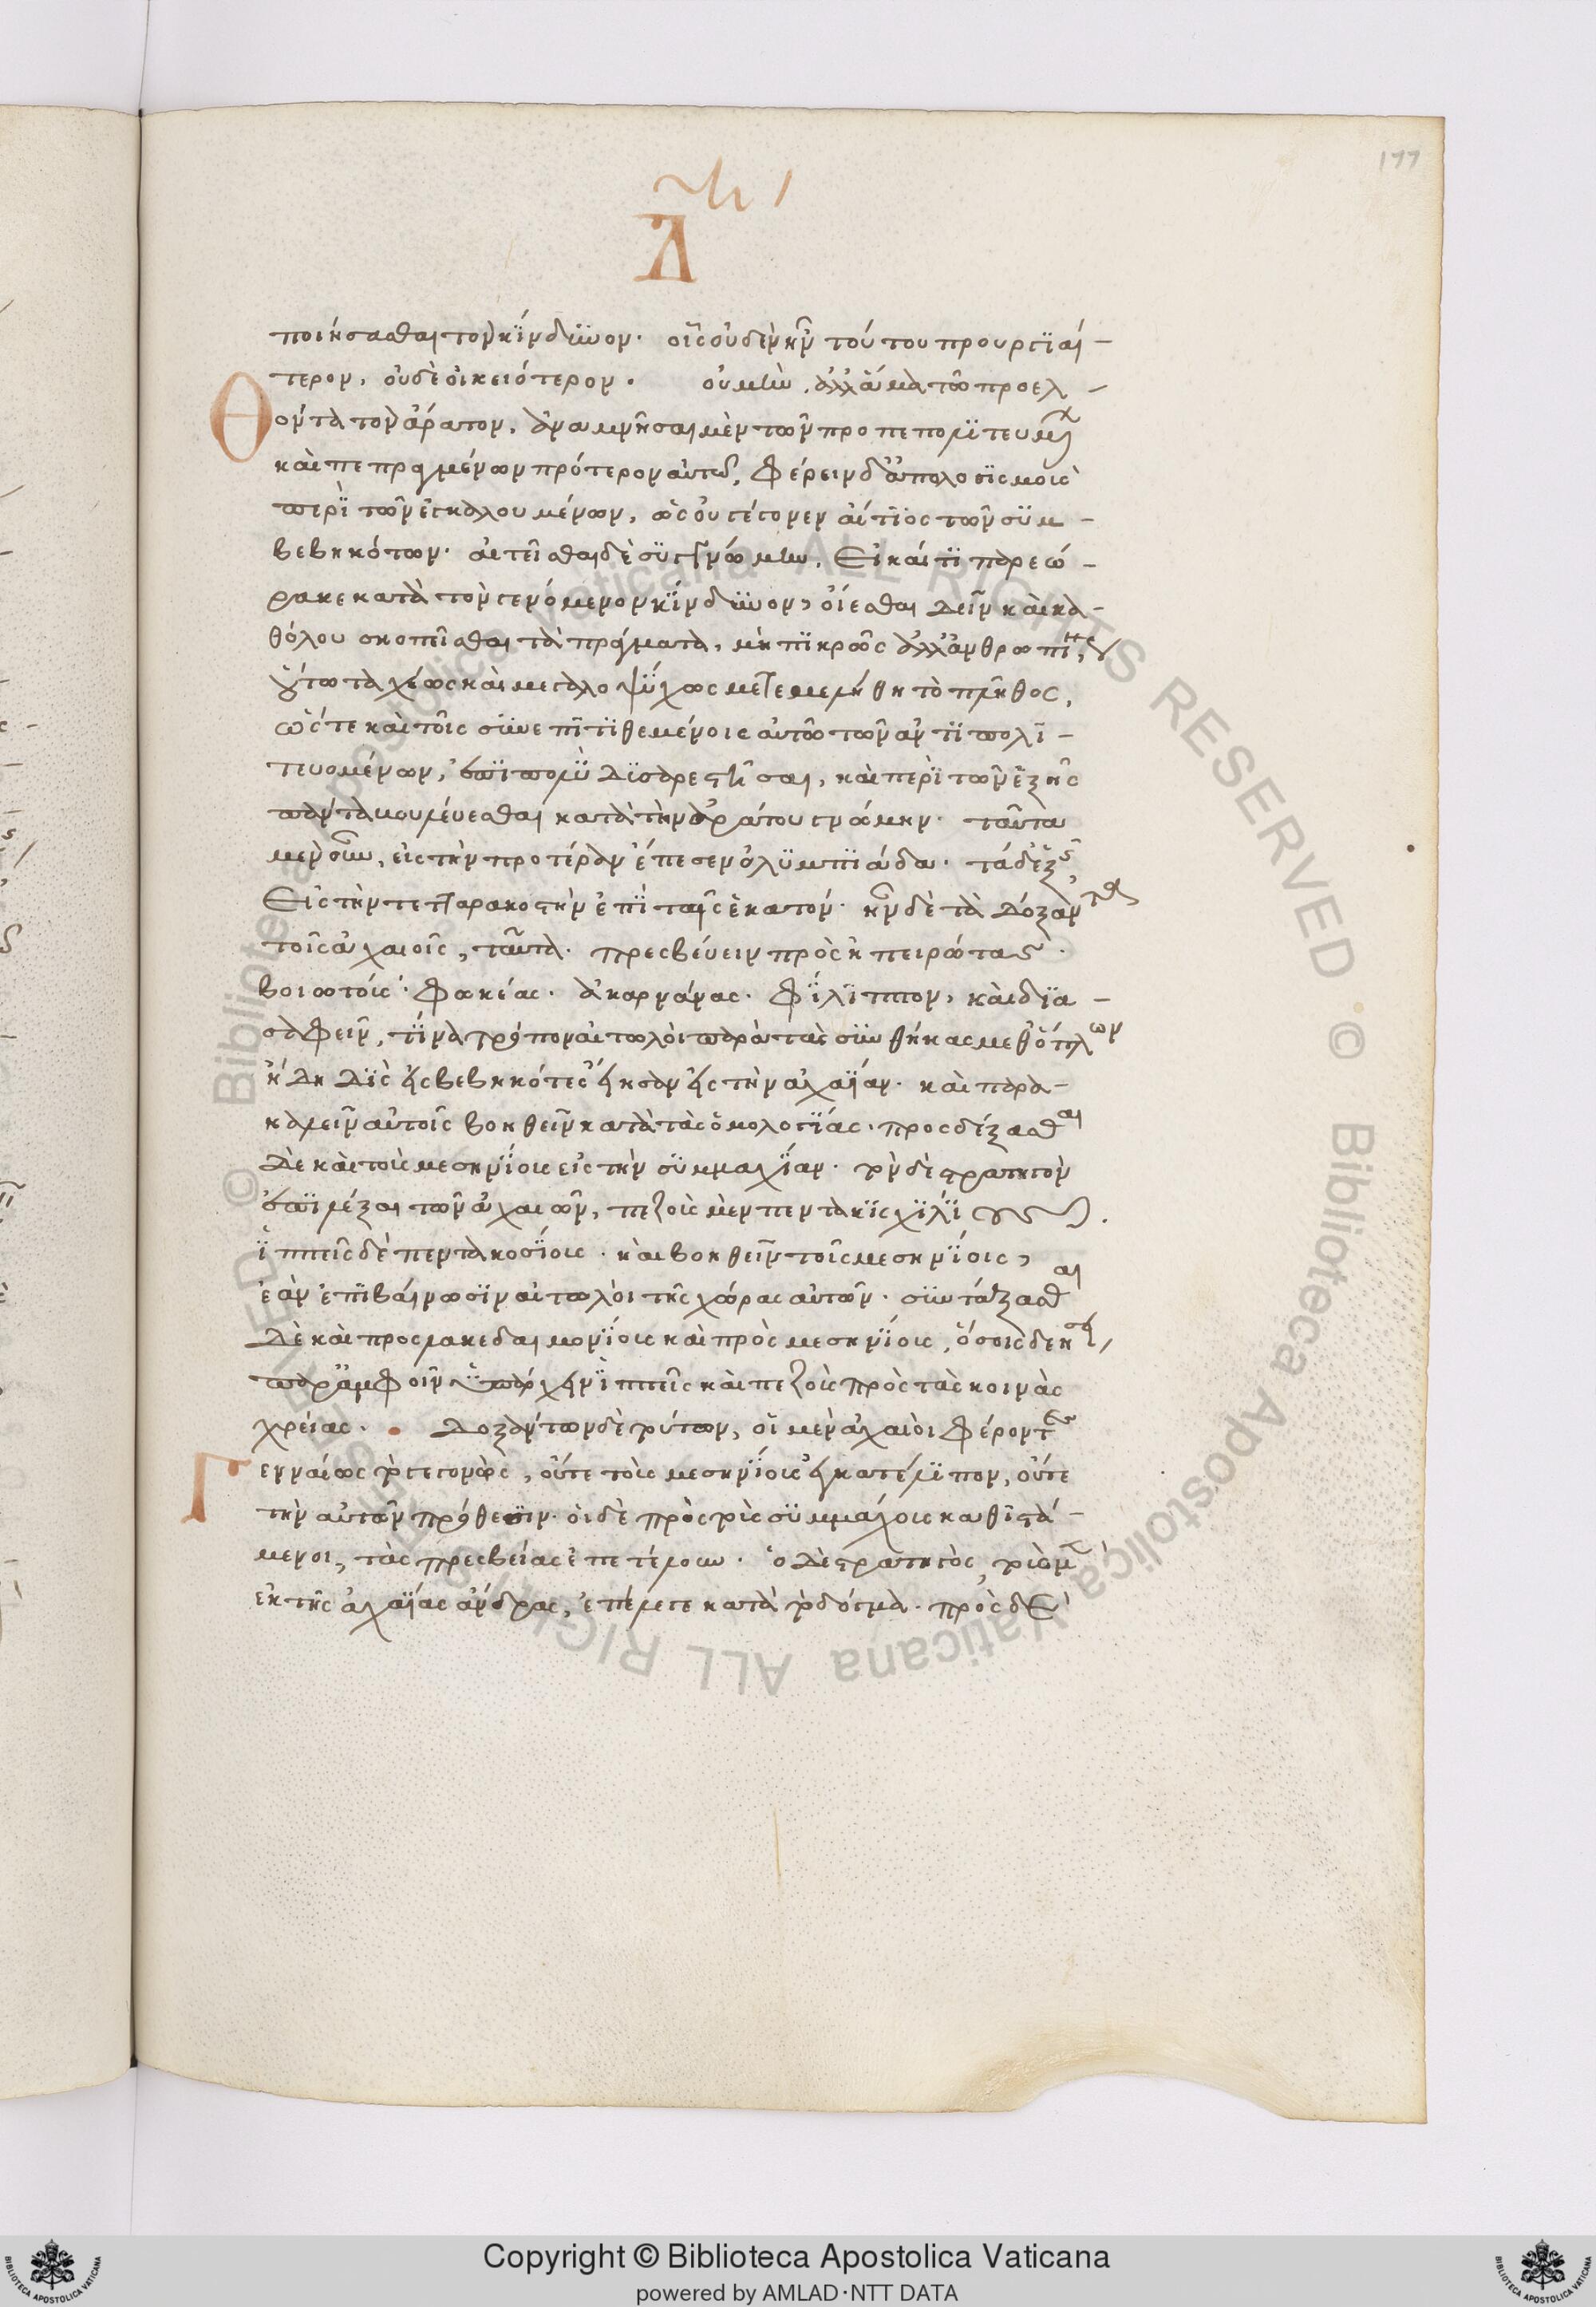 177
Δ
ποιήσασθαι τὸν κίνδυνον. οἷς οὐδὲν ἦν τούτου προυργιαί-
τερον, οὐδὲ οἰκειότερον. οὐ μὴν ἀλλ' ἅμα τῶ προελ-
θόντα τὸν ἄρατον, ἀναμνῆσαι μὲν τῶν προπεπολιτευμένων
καὶ πεπραγμένων πρότερον αὐτῶ, φέρειν δ' ἀπολογισμοὺς
περὶ τῶν ἐγκαλουμένων, ὡς οὐ γέγονεν αἴτιος τῶν συμ-
βεβηκότων. αἰτεῖσθαι δὲ συγγνώμην, εἰ καί τι παρεώ-
ρακε κατὰ τὸν γενόμενον κίνδυνον, οἴεσθαι δεῖν καὶ κα-
θόλου σκοπεῖσθαι τὰ πράγματα, μὴ πικρῶς ἀλλ' ἀνθρωπίνως
οὕτω ταχέως καὶ μεγαλοψύχως μετεμελήθη τὸ πλῆθος,
ὥστε καὶ τοῖς συνεπιτιθεμένοις αὐτῶ τῶν ἀντιπολι-
τευομένων, ἐπὶ πολὺ δυσαρεστῆσαι, καὶ περὶ τῶν ἑξῆς
πάντα βουλεύεσθαι κατὰ τὴν ἀράτου γνώμην. ταῦτα
μὲν οὖν, εἰς τὴν προτέραν ἔπεσεν ὀλυμπιάδα. τὰ δ' ἑξῆς,
εἰς τὴν τετταρακοστὴν ἐπὶ ταῖς ἑκατόν. ἦν δὲ τὰ δόξαντα
τοῖς ἀχαιοῖς, ταῦτα. πρεσβεύειν πρὸς ἠπειρώτας.
βοιωτούς. φωκέας. ἀκαρνάνας. φίλιππον, καὶ δια-
σαφεῖν, τίνα τρόπον αἰτωλοὶ παρὰ τὰς συνθήκας μεθ' ὅπλων
ἤδη δὶς εἰσβεβηκότες εἴησαν εἰς τὴν ἀχαΐαν. καὶ παρα-
καλεῖν αὐτοὺς βοηθεῖν κατὰ τὰς ὁμολογίας. προσδέξασθαι
δὲ καὶ τοὺς μεσηνίους εἰς τὴν συμμαχίαν. τὸν δὲ στρατηγὸν
ἐπιλέξαι τῶν ἀχαιῶν, πεζοὺς μὲν πεντακισχιλίους.
ἱππεῖς δὲ πεντακοσίους. καὶ βοηθεῖν τοῖς μεσηνίοις,
ἐὰν ἐπιβαίνωσιν αἰτωλοὶ τῆς χώρας αὐτῶν. συντάξασθαι
δὲ καὶ προς λακεδαιμονίους καὶ πρὸς μεσηνίους, ὅσους δεήσει
παρ' ἀμφοῖν ὑπάρχειν ἱππεῖς καὶ πεζοὺς πρὸς τὰς κοινὰς
χρείας. δοξάντων δὲ τούτων, οἱ μὲν ἀχαιοὶ φέροντες
γενναίως τὸ γεγονὸς, οὔτε τοὺς μεσηνίους ἐγκατέλιπον, οὔτε
τὴν αὑτῶν πρόθεσιν. οἱ δὲ πρὸς τοὺς συμμάχους καθιστά-
μενοι, τὰς πρεσβείας ἐπετέλουν. ὁ δὲ στρατηγὸς, τοὺς μὲν
ἐκ τῆς ἀχαΐας ἄνδρας, ἐπέλεγε κατὰ τὸ δόγμα. πρὸς δὲ
© Biblioteca Apostolica Vaticana ALL RIGHTS RESERVED © Biblioteca Apostolica Vaticana ALL RIGHTS RESERVED
Copyright © Biblioteca Apostolica Vaticana
powered by AMLAD·NTT DATA
BIBLIOTECA APOSTOLICA VATICANA
BIBLIOTECA APOSTOLICA VATICANA